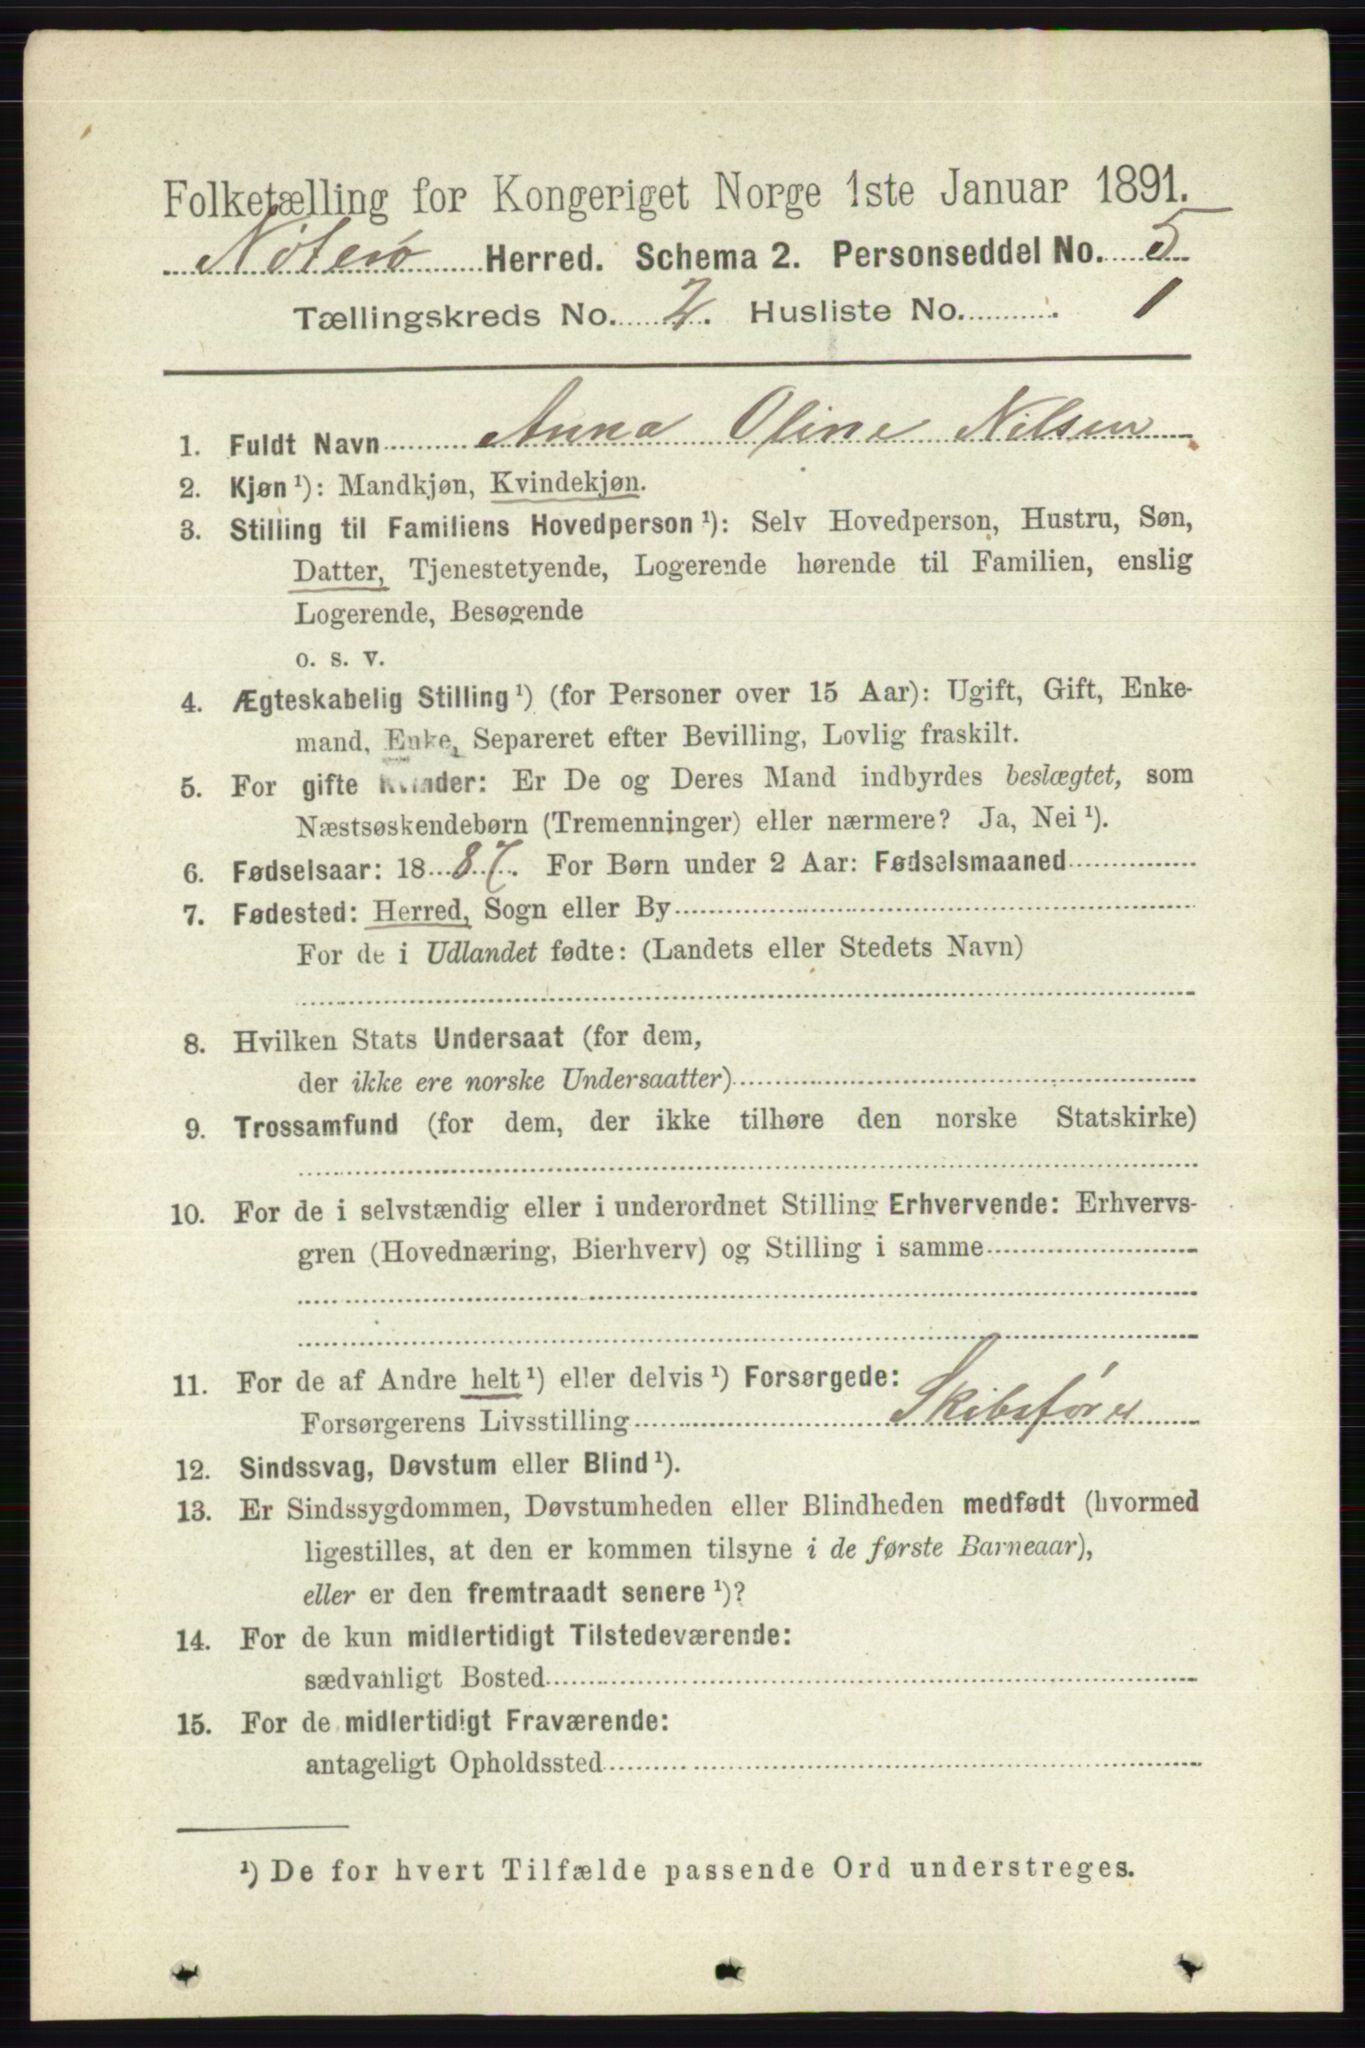 Folketælling for Kongeriget Norge 1ste Januar 1891.
Nøterø Herred. Schema 2. Personseddel No. 5
Tællingskreds No. 2. Husliste No. 1
1. Fuldt Navn Anna Oline Nilsen
2. Kjøn ¹): Mandkjøn, Kvindekjøn.
3. Stilling til Familiens Hovedperson ¹): Selv Hovedperson, Hustru, Søn,
Datter, Tjenestetyende, Logerende hørende til Familien, enslig
Logerende, Besøgende
o. s. v.
4. Ægteskabelig Stilling ¹) (for Personer over 15 Aar): Ugift, Gift, Enke-
mand, Enke, Separeret efter Bevilling, Lovlig fraskilt.
5. For gifte Kvinder: Er De og Deres Mand indbyrdes beslægtet, som
Næstsøskendebørn (Tremenninger) eller nærmere? Ja, Nei ¹).
6. Fødselsaar: 18 87. For Børn under 2 Aar: Fødselsmaaned
7. Fødested: Herred, Sogn eller By
For de i Udlandet fødte: (Landets eller Stedets Navn)
8. Hvilken Stats Undersaat (for dem,
der ikke ere norske Undersaatter)
9. Trossamfund (for dem, der ikke tilhøre den norske Statskirke)
10. For de i selvstændig eller i underordnet Stilling Erhvervende: Erhvervs-
gren (Hovednæring, Bierhverv) og Stilling i samme
11. For de af Andre helt ¹) eller delvis ¹) Forsørgede:
Forsørgerens Livsstilling Skibsfører
12. Sindssvag, Døvstum eller Blind ¹).
13. Er Sindssygdommen, Døvstumheden eller Blindheden medfødt (hvormed
ligestilles, at den er kommen tilsyne i de første Barneaar),
eller er den fremtraadt senere ¹)?
14. For de kun midlertidigt Tilstedeværende:
sædvanligt Bosted
15. For de midlertidigt Fraværende:
antageligt Opholdssted
¹) De for hvert Tilfælde passende Ord understreges.